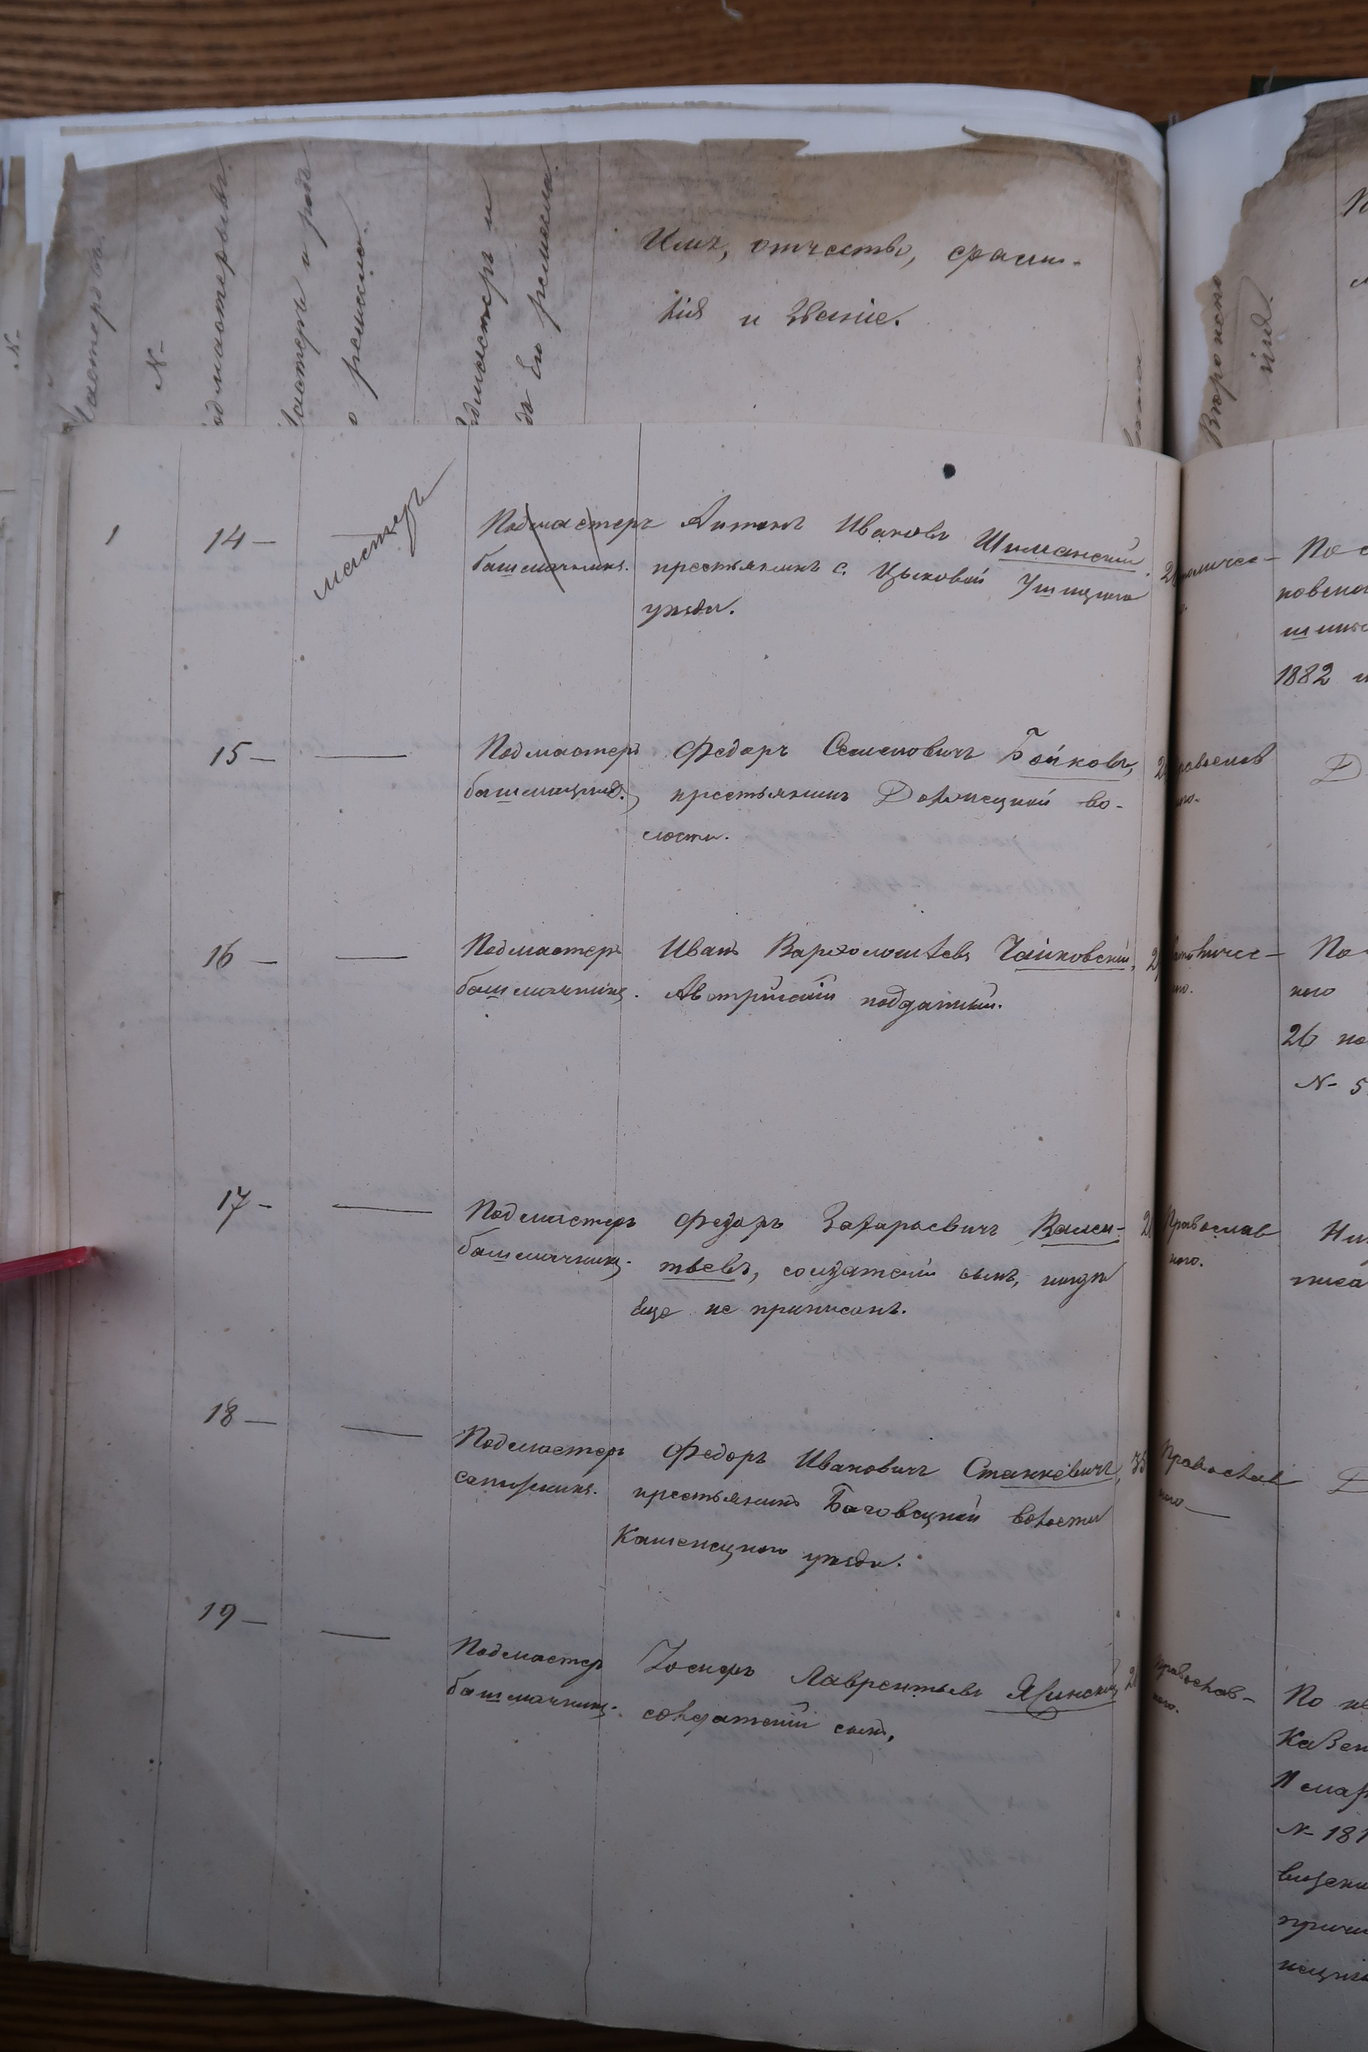 №
Мастеровъ.
№
подмастерьевъ.
Мастеръ и родъ
ремесла.
Подмастеръ и
его ремесла.
Имя, отчество, фами-
лія и званіе.
Вѣроиспо
нія.
1
14 —
мастеръ
Подмастеръ
башмачникъ.
Антонъ Ивановъ Шиманскій
крестьянинъ с. Цыковой Ушицкаго
уѣзда.
1882
15 —
Подмастеръ
башмачник.
Федоръ Семеновичъ Бойковъ,
крестьянинъ во-
лости.
16 —
Подмастеръ
башмачникъ.
Иванъ Варфоломѣевъ Чайковскій,
Австрійскій подданный.
По
ного
26 но
№ 5
17 —
Подмастеръ
башмачникъ.
Федоръ Захарьевичъ Вален-
тьевъ, солдатскій сынъ, нигдѣ
еще не приписанъ.
Православ
ного.
Ни
писа
18 —
Подмастеръ
сапожникъ.
Федоръ Ивановичъ Станкевичъ, 35
крестьянинъ Баговецкой волости
Каменецкого уѣзда.
Православ
ного
19 —
Подмастер
башмачникъ.
Іосифъ Лаврентьевъ Ясинскій
солдатскій сынъ,
Православ-
ного.
По
Казен
11 мар
№ 181